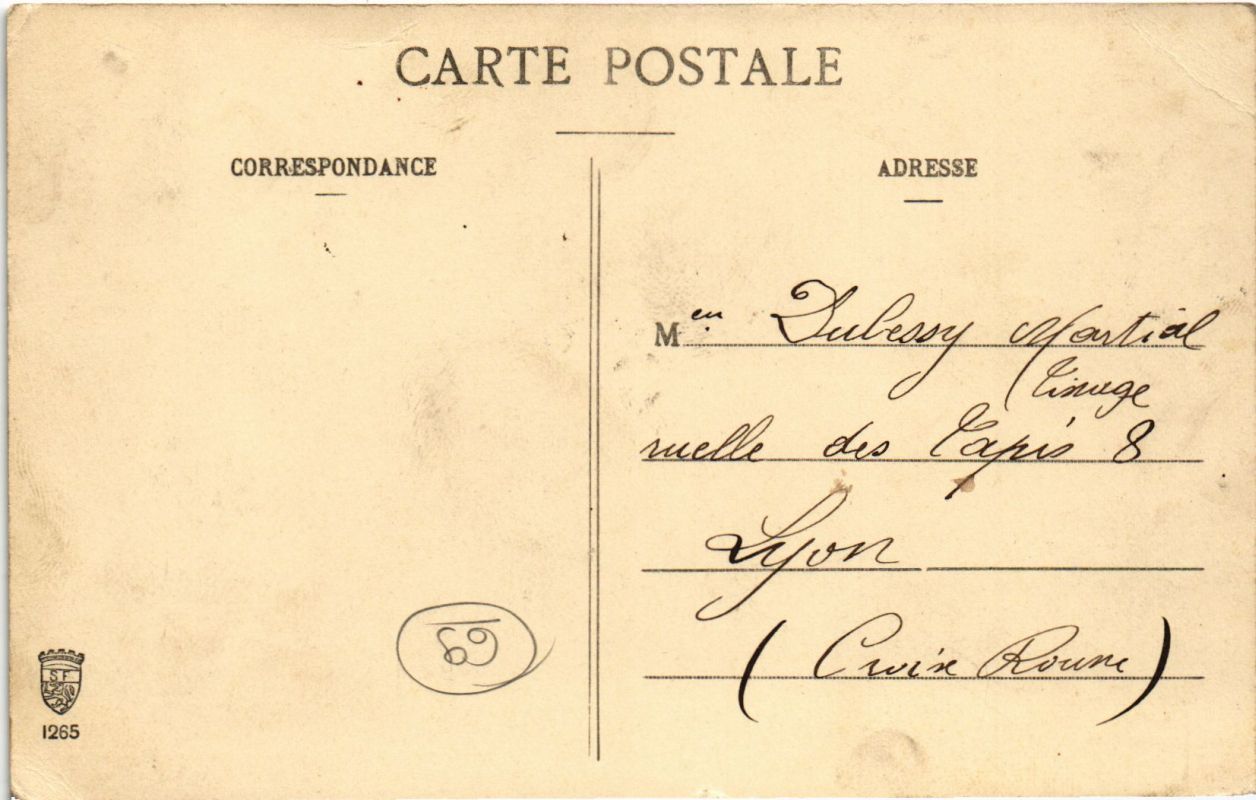 CARTE POSTALE
CORRESPONDANCE
ADRESSE
Men Dubessy Martial
Tissage
ruelle des Tapis 8
Lyon
(Croix Rousse)
69
SF
1265